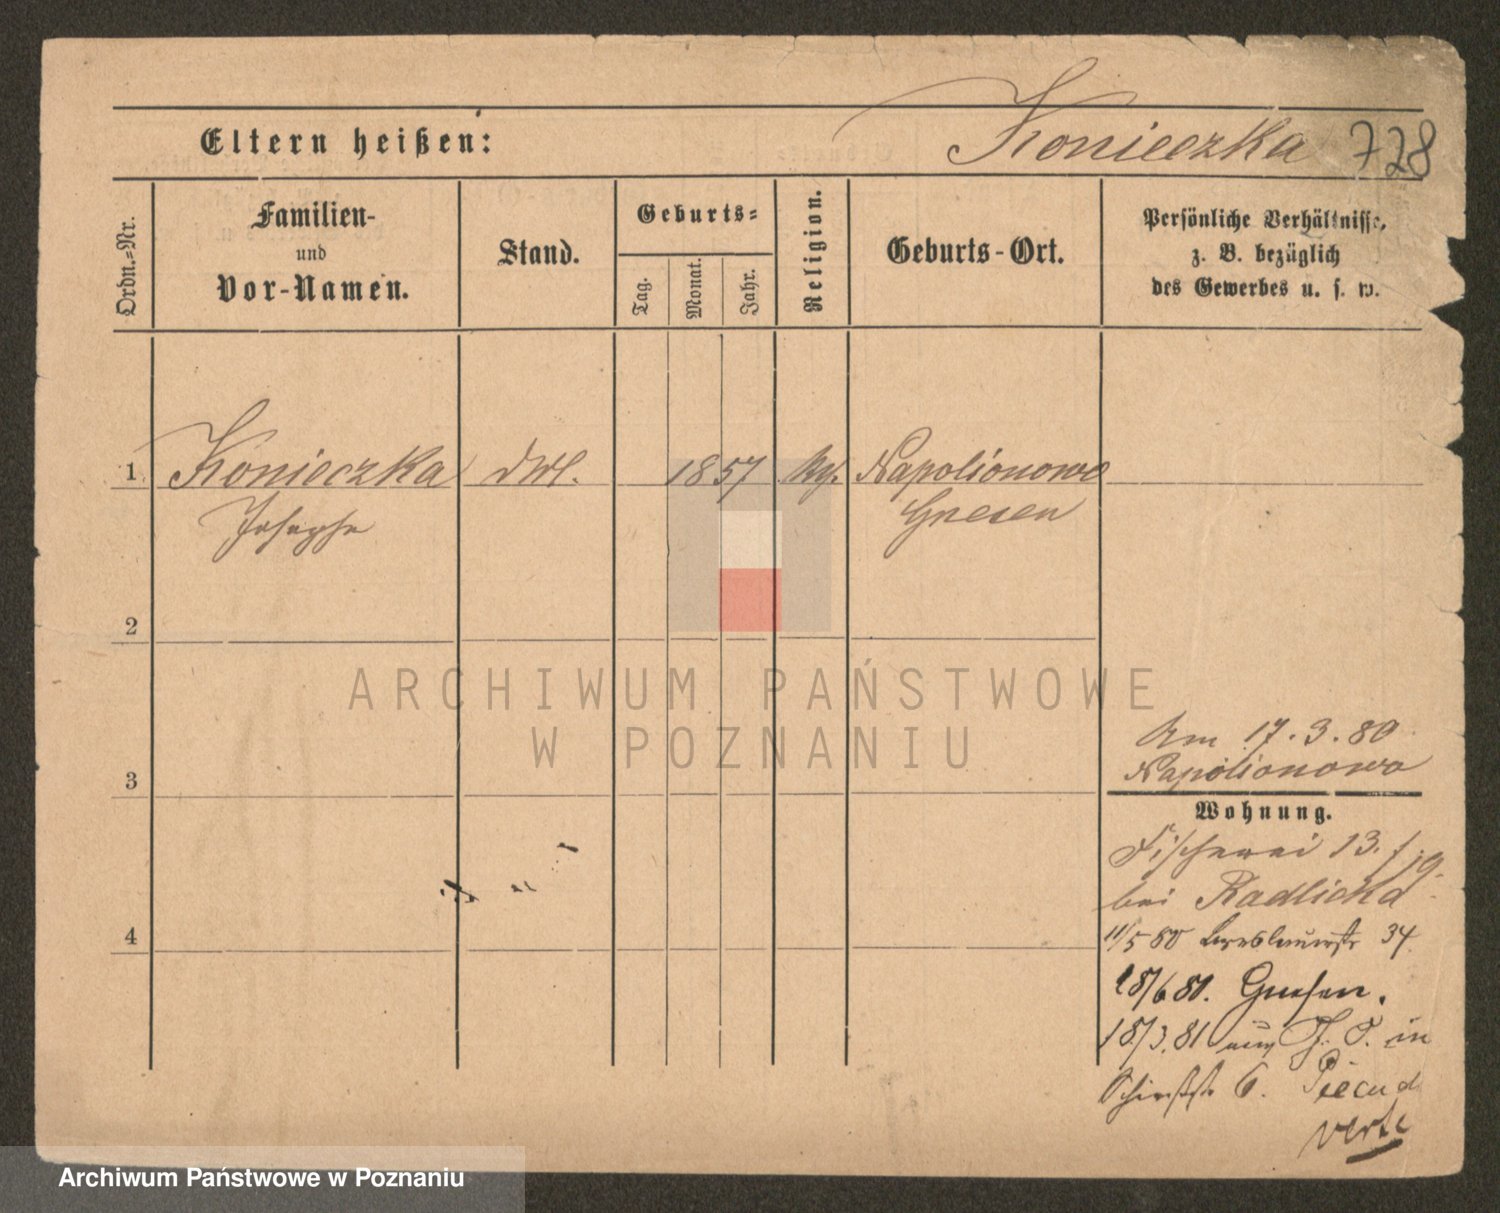 Eltern heißen: Konieczka 728
Ordn.-Nr.
Familien-
und
Vor-Namen.
Stand.
Geburts-
Tag.
Monat.
Jahr.
Religion.
Geburts-Ort.
Persönliche Verhältnisse,
z. B. bezüglich
des Gewerbes u. s. w.
1 Konieczka 1857 Napolionowo
Josepha Gnesen
2
3
4
Am 17. 3. 80
Napolionowo
Wohnung.
Fischerei 13.
bei Radlicka
11/5 80 Breslauerstr 34
18/6 80. Gnesen.
18/3. 81 in
6.
verte
ARCHIWUM PAŃSTWOWE
W POZNANIU
Archiwum Państwowe w Poznaniu